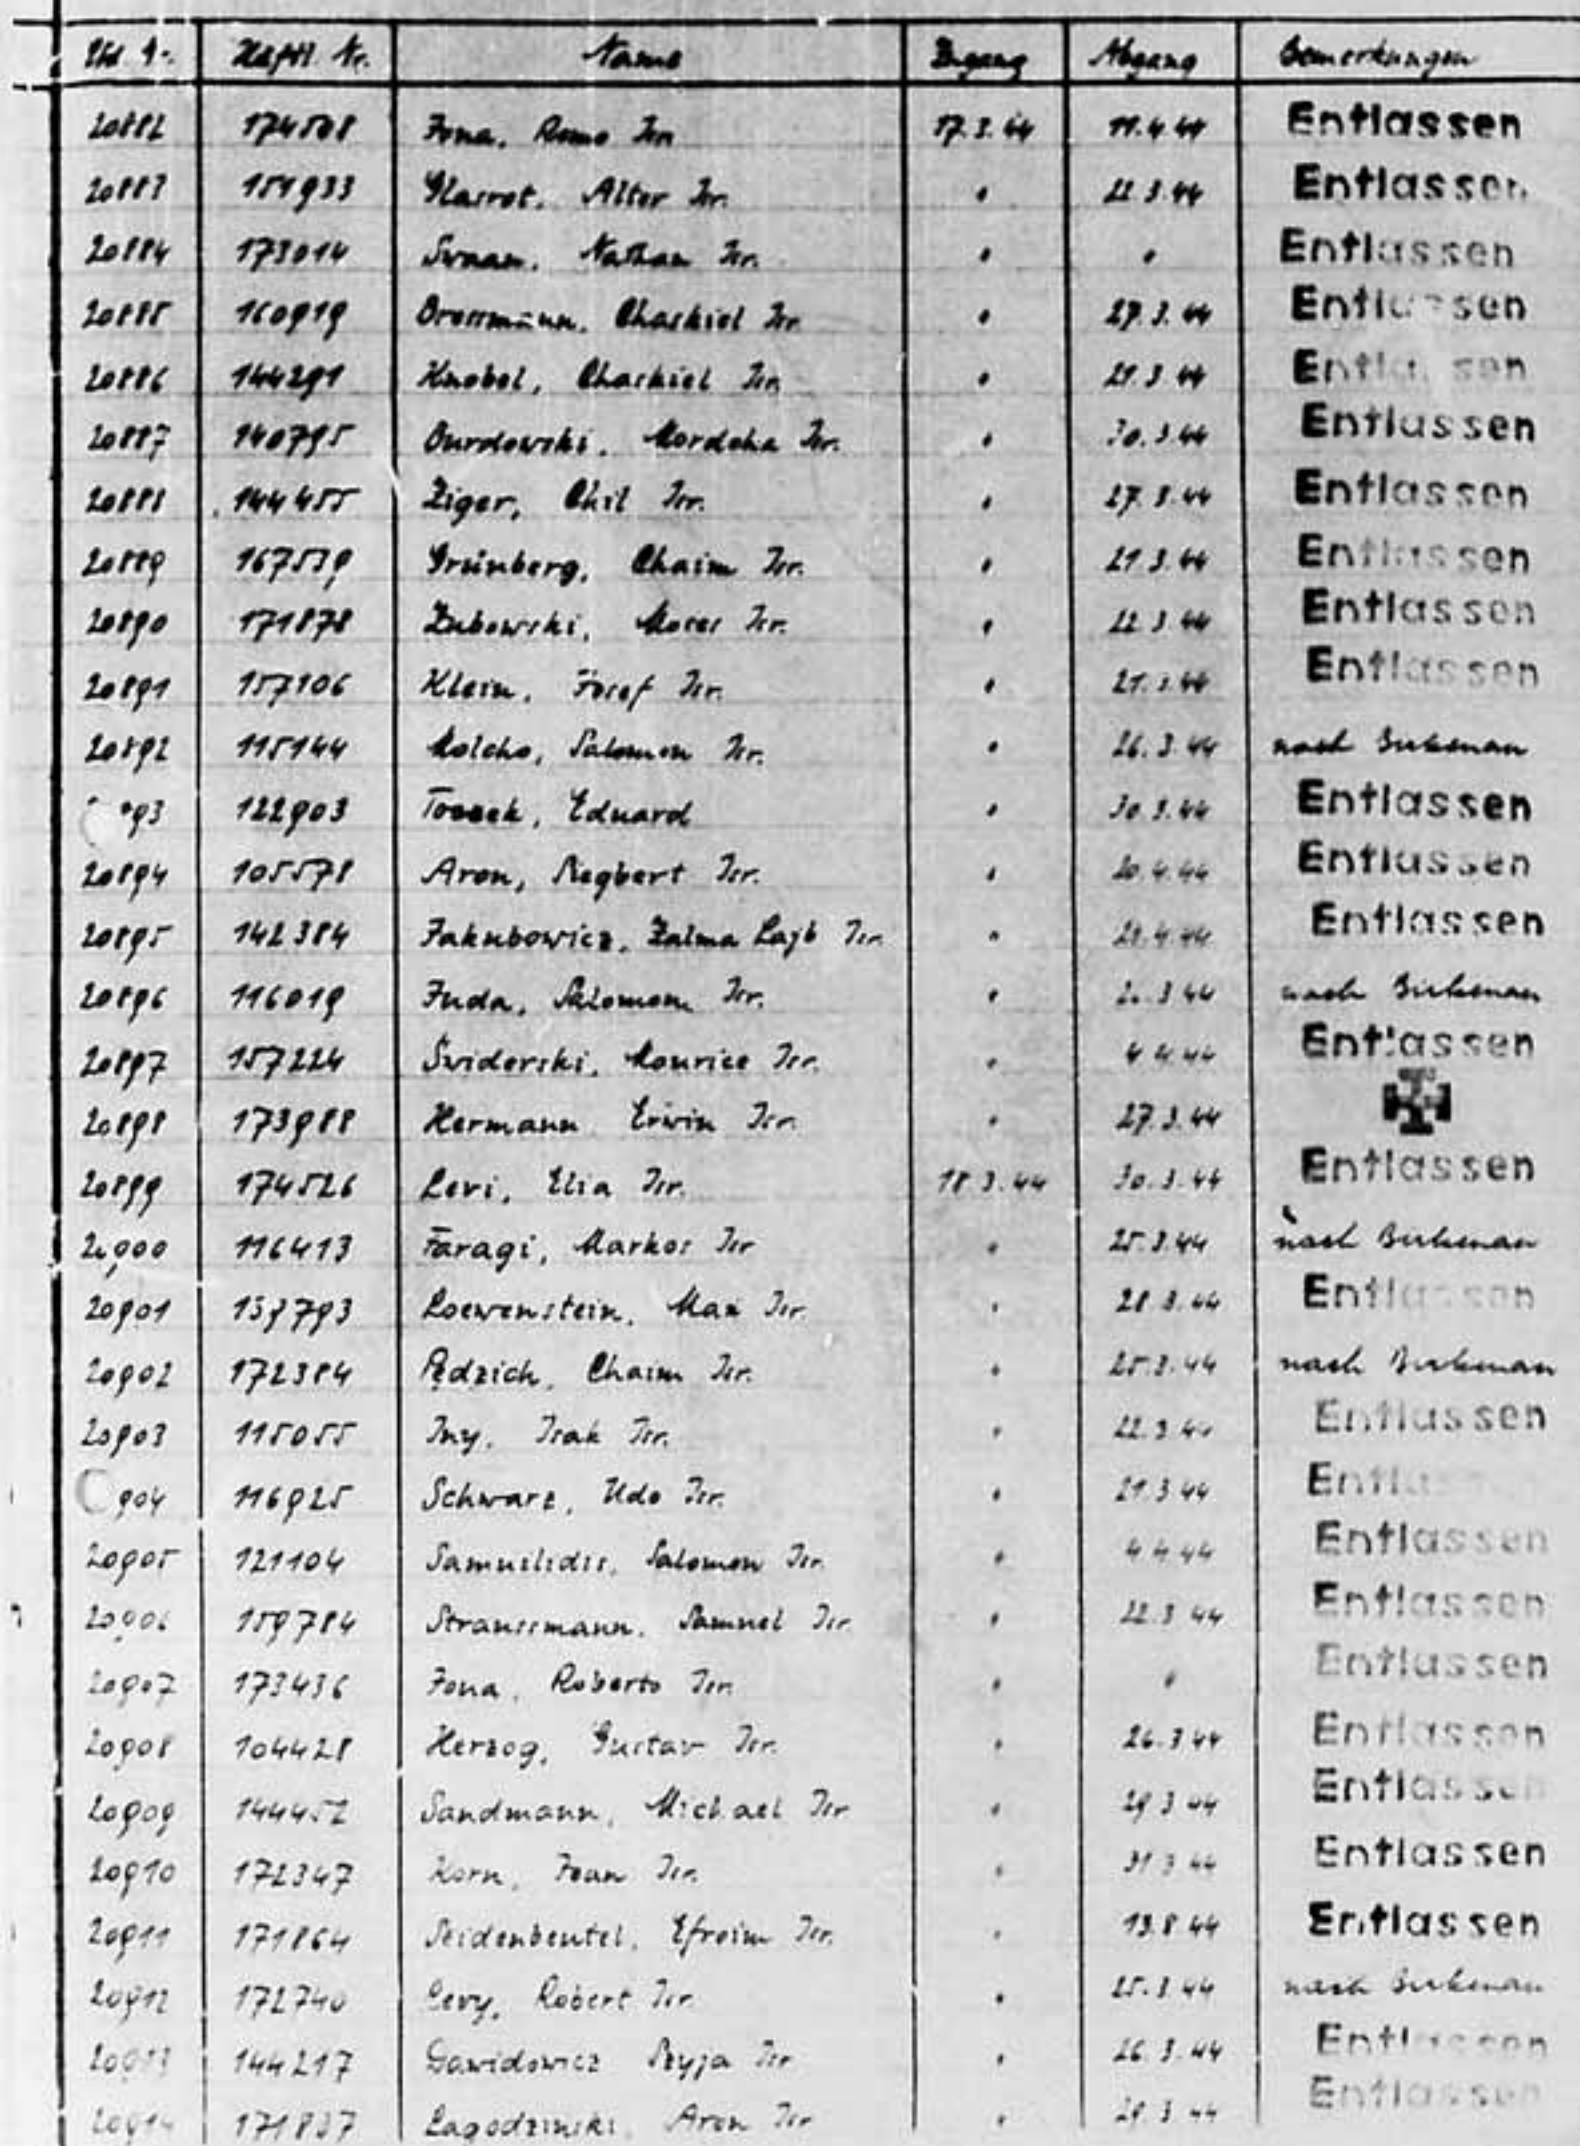 Lfd. Nr. Häftl. Nr. Name Zugang Abgang Bemerkungen
20882 174508 Jona, Remo Isr. 17.3.44 11.4.44 Entlassen
20883 151933 Alter Isr. " 22.3.44 Entlassen
20884 173014 Swaan, Nathan Isr. " " Entlassen
20885 160919 Chaskiel Isr. " 27.3.44 Entlassen
20886 144291 Knobel, Chaskiel Isr. " 21.3.44 Entlassen
20887 140795 Burdowski, Mordcha Isr. " 30.3.44 Entlassen
20888 144455 Ziger, Chil Isr. " 27.3.44 Entlassen
20889 167539 Grünberg, Chaim Isr. " 21.3.44 Entlassen
20890 171878 Zubowski, Moses Isr. " 22.3.44 Entlassen
20891 157106 Klein, Josef Isr. " 21.3.44 Entlassen
20892 115144 Molcho, Salomon Isr. " 26.3.44 nach Birkenau
93 122903 Eduard " 30.3.44 Entlassen
20894 105578 Aron, Regbert Isr. " 20.4.44 Entlassen
20895 142384 Jakubowicz, Zalma Lajb Isr. " 44 Entlassen
20896 116019 Juda, Salomon Isr. " 3.44 nach Birkenau
20897 157224 Swiderski, Maurice Isr. " 4.4.44 Entlassen
20898 173988 Hermann Erwin Isr. " 27.3.44
20899 174526 Levi, Elia Isr. 18.3.44 30.3.44 Entlassen
20900 116413 Faragi, Markos Isr " 25.3.44 nach Birkenau
20901 157793 Loewenstein, Max Isr. " 28.3.44 Entlassen
20902 172384 Pędzich, Chaim Isr. " 25.3.44 nach Birkenau
20903 115055 Iny, Isak Isr. " 22.3.44 Entlassen
904 116925 Schwarz, Udo Isr. " 21.3.44 Entlassen
20905 121104 Samuelidis, Salomon Isr. " 4.4.44 Entlassen
20906 159784 Straussmann, Samuel Isr " 22.3.44 Entlassen
20907 173436 Jona, Roberto Isr. " " Entlassen
20908 104428 Herzog, Gustav Isr. " 26.3.44 Entlassen
20909 144452 Sandmann, Michael Isr " 29.3.44 Entlassen
20910 172347 Korn, Jean Isr. " 31.3.44 Entlassen
20911 171864 Seidenbeutel, Efroim Isr. " 13.8.44 Entlassen
20912 172740 Levy, Robert Isr. " 25.3.44 nach Birkenau
20913 144217 Dawidowicz Isr " 26.3.44 Entlassen
20914 171837 Lagodzinski, Aron Isr " 28.3.44 Entlassen